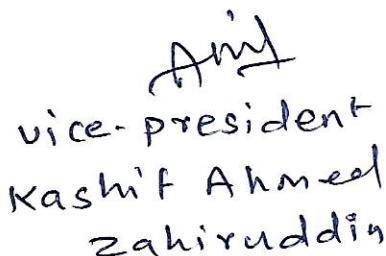 vice-president
Kashif Ahmed
Zahiruddin